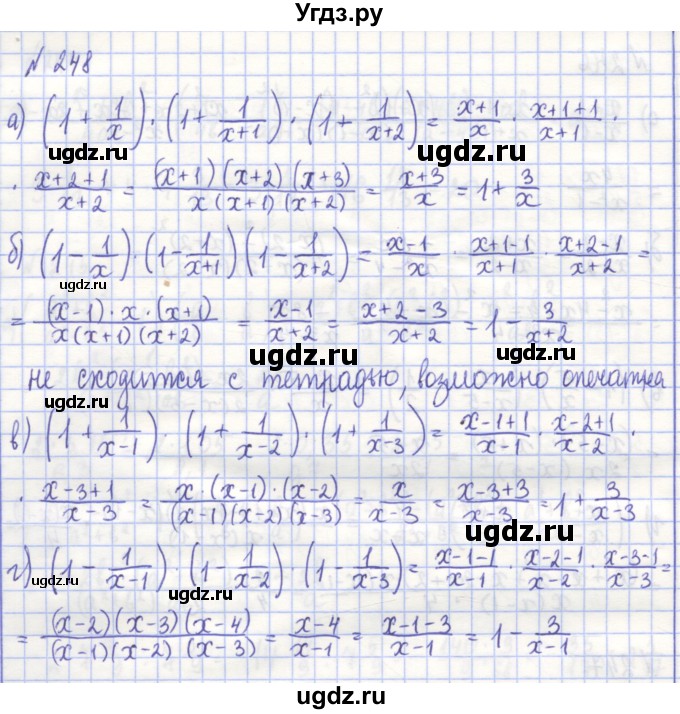 Угдз.ру
№ 248
а) (1 + 1/x) · (1 + 1/(x+1)) · (1 + 1/(x+2)) = (x+1)/x · (x+1+1)/(x+1) ·
ugdz.ru ugdz.ru
· (x+2+1)/(x+2) = ((x+1)(x+2)(x+3))/(x(x+1)(x+2)) = (x+3)/x = 1 + 3/x
ugdz.ru ugdz.ru
б) (1 - 1/x) · (1 - 1/(x+1)) (1 - 1/(x+2)) = (x-1)/x · (x+1-1)/(x+1) · (x+2-1)/(x+2) =
ugdz.ru
= ((x-1) · x · (x+1))/(x(x+1)(x+2)) = (x-1)/(x+2) = (x+2-3)/(x+2) = 1 - 3/(x+2)
ugdz.ru ugdz.ru
не сходится с тетрадью, возможно опечатка
ugdz.ru
в) (1 + 1/(x-1)) · (1 + 1/(x-2)) · (1 + 1/(x-3)) = (x-1+1)/(x-1) · (x-2+1)/(x-2) ·
ugdz.ru ugdz.ru
· (x-3+1)/(x-3) = (x · (x-1) · (x-2))/((x-1)(x-2)(x-3)) = x/(x-3) = (x-3+3)/(x-3) = 1 + 3/(x-3)
ugdz.ru
г) (1 - 1/(x-1)) · (1 - 1/(x-2)) · (1 - 1/(x-3)) = (x-1-1)/(x-1) · (x-2-1)/(x-2) · (x-3-1)/(x-3) =
ugdz.ru ugdz.ru
= ((x-2)(x-3)(x-4))/((x-1)(x-2)(x-3)) = (x-4)/(x-1) = (x-1-3)/(x-1) = 1 - 3/(x-1)
ugdz.ru ugdz.ru
ugdz.ru